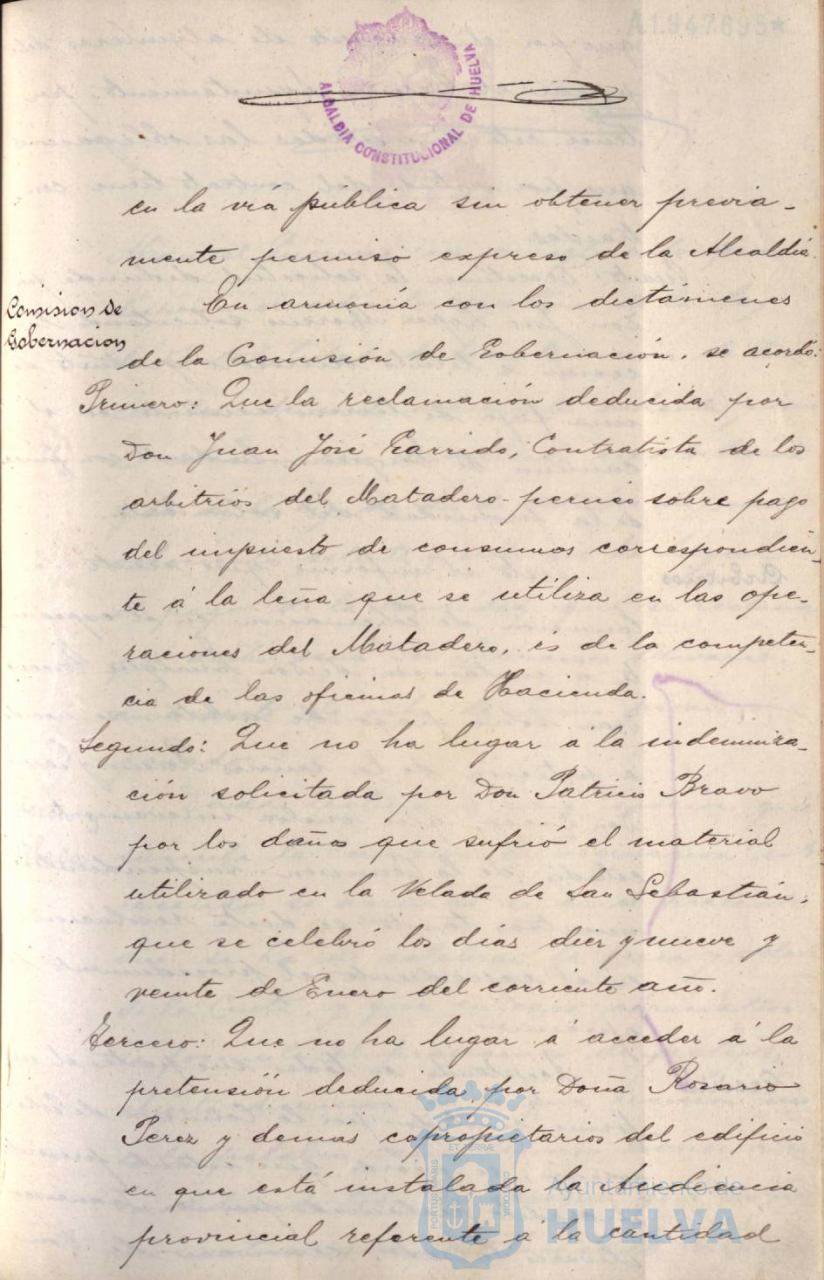 A1.947.695*
ALCALDÍA CONSTITUCIONAL DE HUELVA
en la vía pública sin obtener previa-
mente permiso expreso de la Alcaldía.
Comisión de
Gobernación
En armonía con los dictámenes
de la Comisión de Gobernación, se acordó:
Primero: Que la reclamación deducida por
Don Juan José Garrido, Contratista de los
arbitrios del Matadero sobre pago
del impuesto de consumos correspondien-
te á la leña que se utiliza en las ope-
raciones del Matadero, es de la competen-
cia de las oficinas de Hacienda.
Segundo: Que no ha lugar á la indemniza-
ción solicitada por Don Patricio Bravo
por los daños que sufrió el material
utilizado en la Velada de San Sebastián,
que se celebró los días diez y nueve y
veinte de Enero del corriente año.
Tercero: Que no ha lugar á acceder á la
pretensión deducida por Doña Rosario
Perez y demás copropietarios del edificio
en que está instalada la Audiencia
provincial referente á la cantidad
Ayuntamiento de
HUELVA